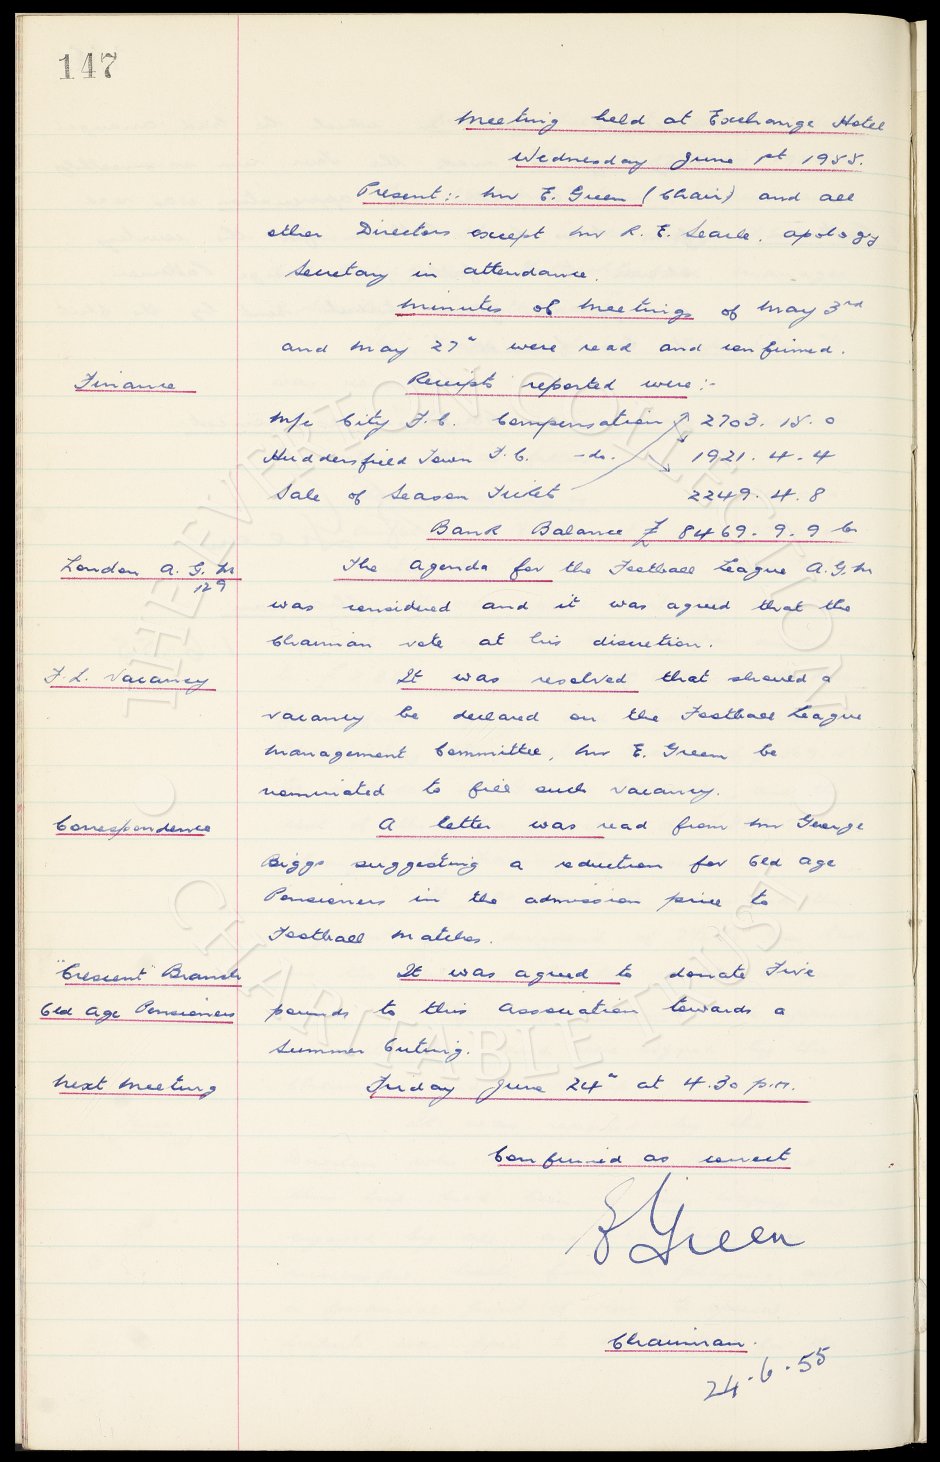 147
Meeting held at Exchange Hotel
Wednesday June 1st 1955.
Present:- Mr E. Green (Chair) and all
other Directors except Mr R. E. Searle, apology
Secretary in attendance.
Minutes of Meetings of May 3rd
and May 27" were read and confirmed.
Finance Receipts reported were:-
M/c City F.C. Compensation 2703. 15. 0
Huddersfield Town F.C. -do. 1921. 4. 4
Sale of Season Tickets 2249. 4. 8
Bank Balance £ 8469. 9. 9 Cr
London A.G.M The Agenda for the Football League A.G.M
129
was considered and it was agreed that the
Chairman vote at his discretion.
F.L. Vacancy It was resolved that should a
vacancy be declared on the Football League
Management Committee, Mr E. Green be
nominated to fill such vacancy.
Correspondence A letter was read from Mr George
Biggs suggesting a reduction for Old Age
Pensioners in the admission price to
Football Matches.
"Crescent" Branch It was agreed to donate Five
Old Age Pensioners pounds to this Association towards a
Summer Outing.
Next Meeting Friday June 24" at 4.30 p.m.
Confirmed as correct
E Green
Chairman.
24.6.55
THE EVERTON COLLECTION
CHARITABLE TRUST